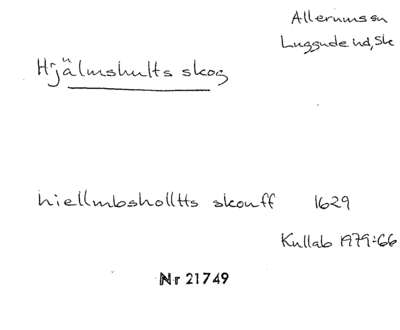 Allerums sn
Luggude hd, Sk
Hjälmshults skog
hiellmbsholltts skouff 1629
Kullab 1979:66
Nr 21749